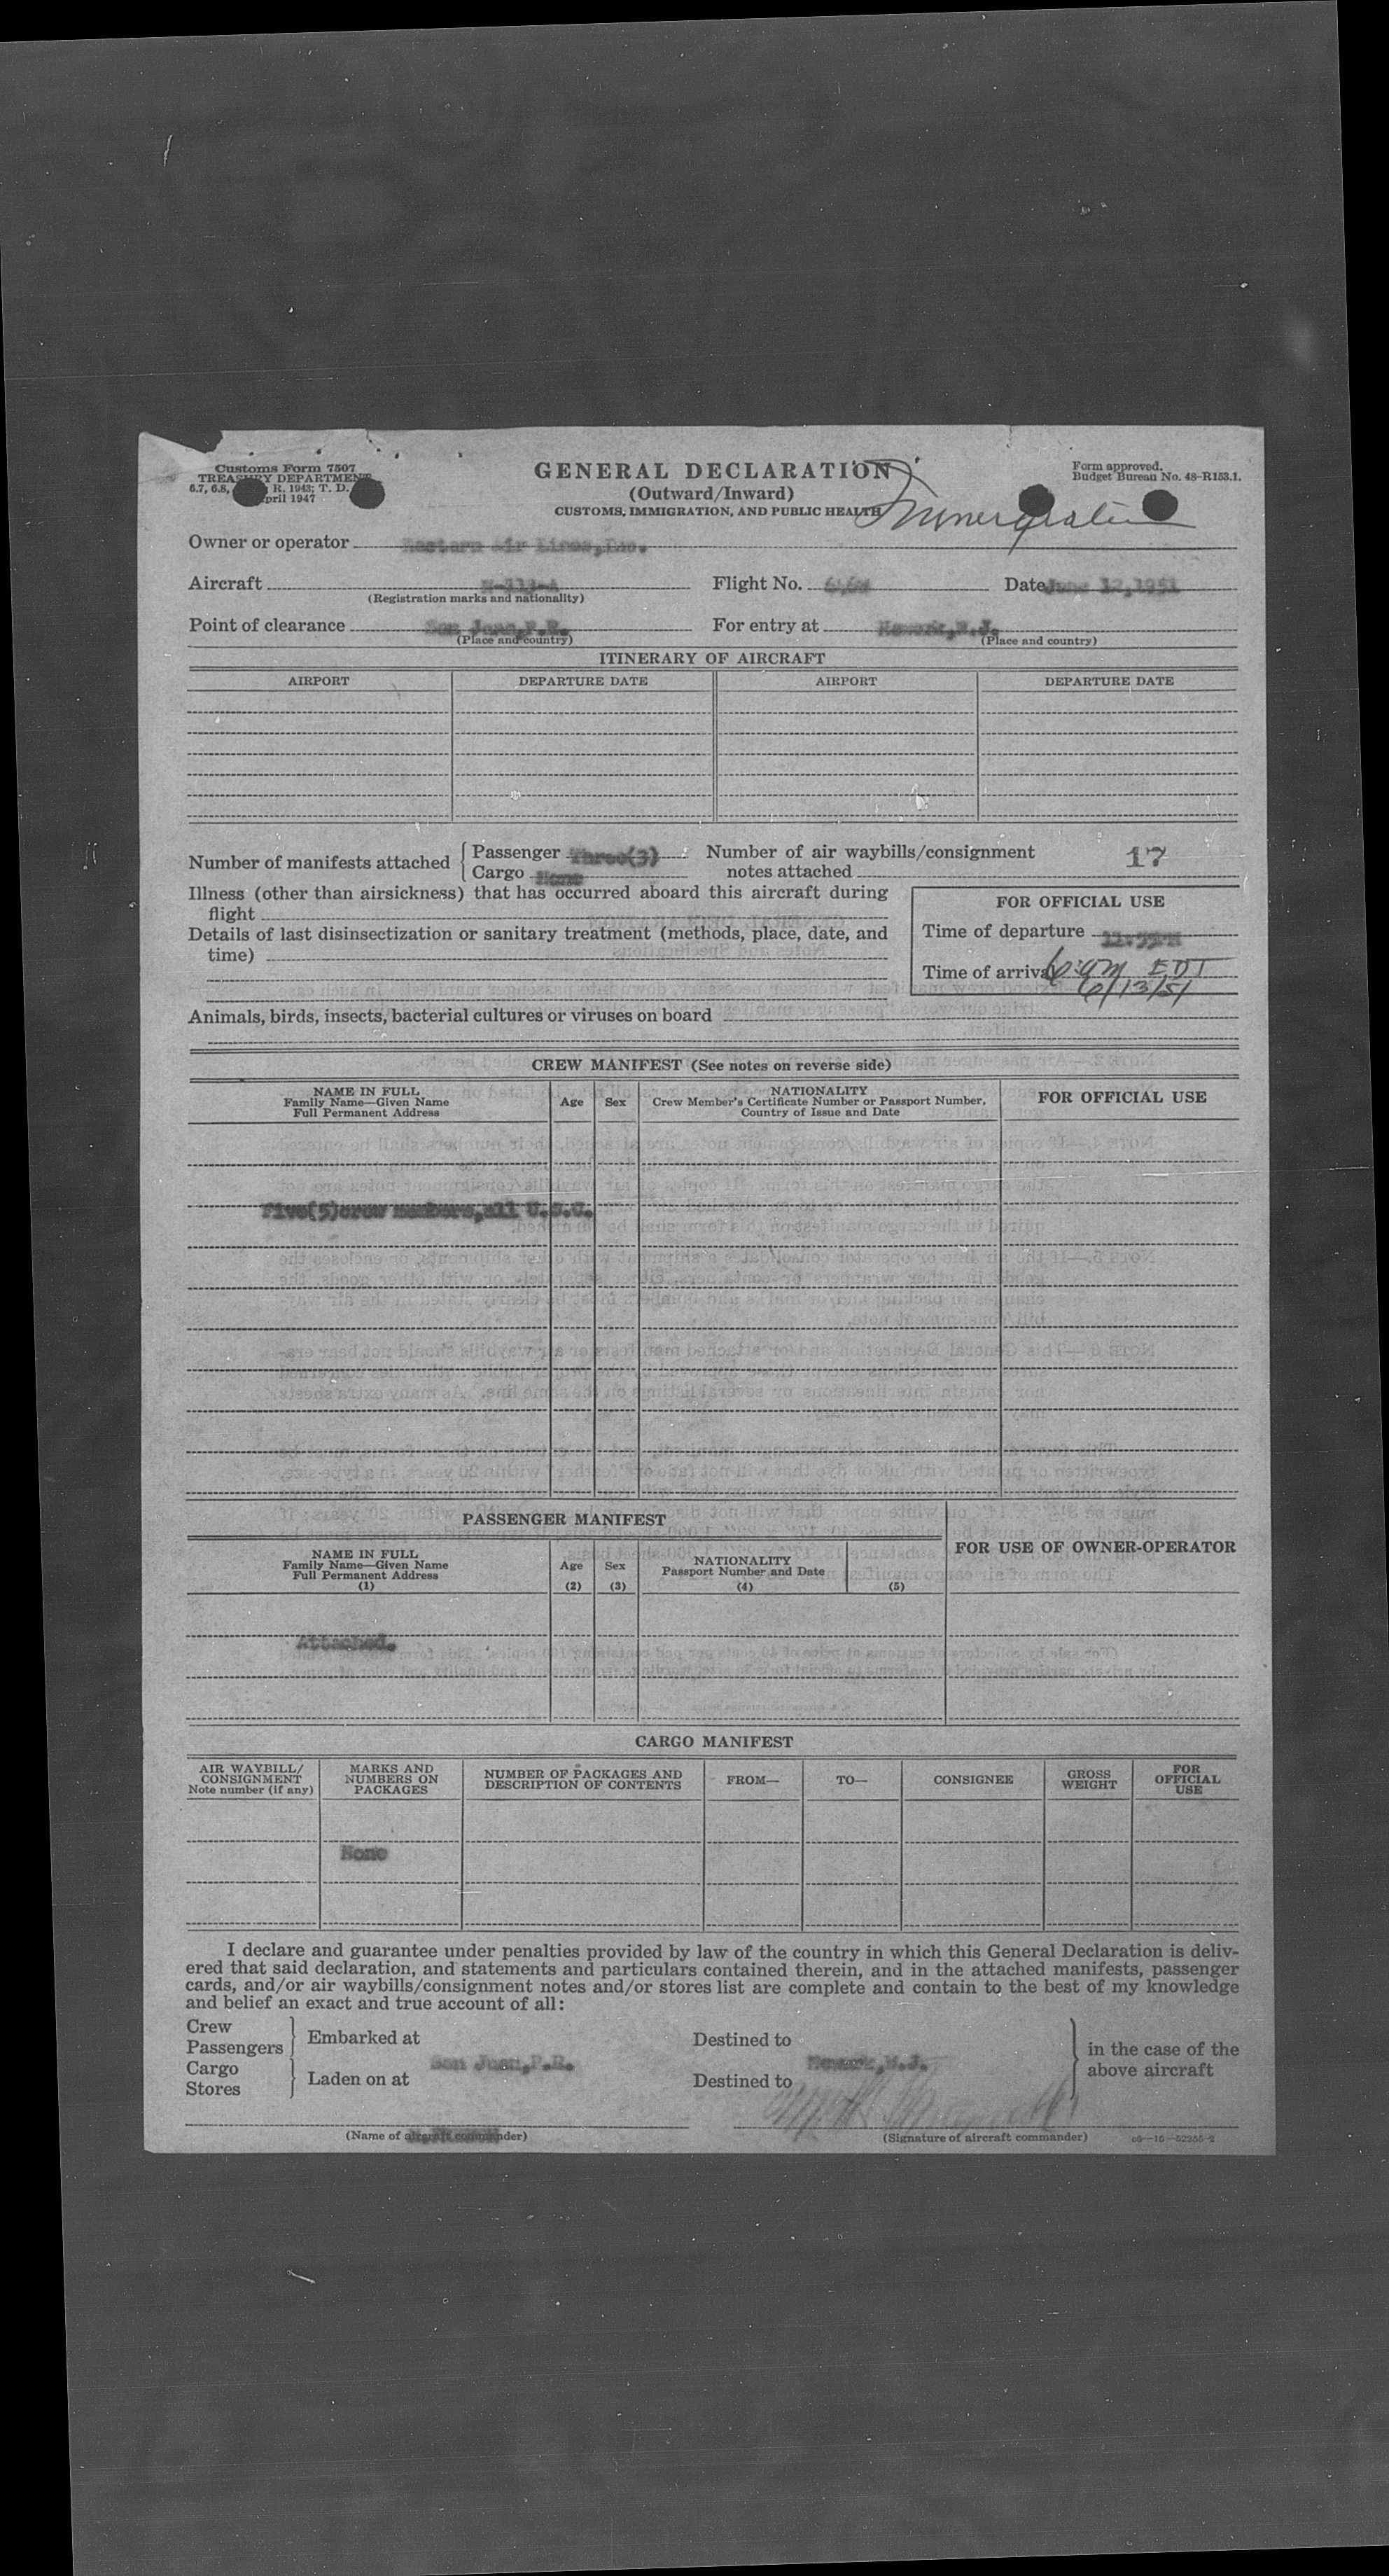 Customs Form 7507
TREASURY DEPARTMENT
6.7, 6.8, R. 1943; T. D.
April 1947
GENERAL DECLARATION
(Outward/Inward)
CUSTOMS, IMMIGRATION, AND PUBLIC HEALTH
Form approved.
Budget Bureau No. 48-R153.1.
Immigration
Owner or operator Eastern Air Lines, Inc.
Aircraft Flight No. Date June 12, 1951
(Registration marks and nationality)
Point of clearance San Juan, P.R. For entry at Newark, N.J.
(Place and country) (Place and country)
ITINERARY OF AIRCRAFT
AIRPORT DEPARTURE DATE AIRPORT DEPARTURE DATE
Number of manifests attached { Passenger Three(3) Number of air waybills/consignment 17
Cargo None notes attached
Illness (other than airsickness) that has occurred aboard this aircraft during
flight
FOR OFFICIAL USE
Details of last disinsectization or sanitary treatment (methods, place, date, and
time)
Time of departure
Time of arrival EDT
6/13/51
Animals, birds, insects, bacterial cultures or viruses on board
CREW MANIFEST (See notes on reverse side)
NAME IN FULL
Family Name—Given Name
Full Permanent Address
Age Sex
NATIONALITY
Crew Member's Certificate Number or Passport Number,
Country of Issue and Date
FOR OFFICIAL USE
Five(5)crew members,all U.S.C.
PASSENGER MANIFEST
FOR USE OF OWNER-OPERATOR
NAME IN FULL
Family Name—Given Name
Full Permanent Address
(1)
Age
(2)
Sex
(3)
NATIONALITY
Passport Number and Date
(4)
(5)
Attached.
CARGO MANIFEST
AIR WAYBILL/
CONSIGNMENT
Note number (if any)
MARKS AND
NUMBERS ON
PACKAGES
NUMBER OF PACKAGES AND
DESCRIPTION OF CONTENTS
FROM—
TO—
CONSIGNEE
GROSS
WEIGHT
FOR
OFFICIAL
USE
None
I declare and guarantee under penalties provided by law of the country in which this General Declaration is deliv-
ered that said declaration, and statements and particulars contained therein, and in the attached manifests, passenger
cards, and/or air waybills/consignment notes and/or stores list are complete and contain to the best of my knowledge
and belief an exact and true account of all:
Crew
Passengers
Cargo
Stores
Embarked at
San Juan, P.R.
Laden on at
Destined to
Newark, N.J.
Destined to
in the case of the
above aircraft
(Name of aircraft commander)
(Signature of aircraft commander)